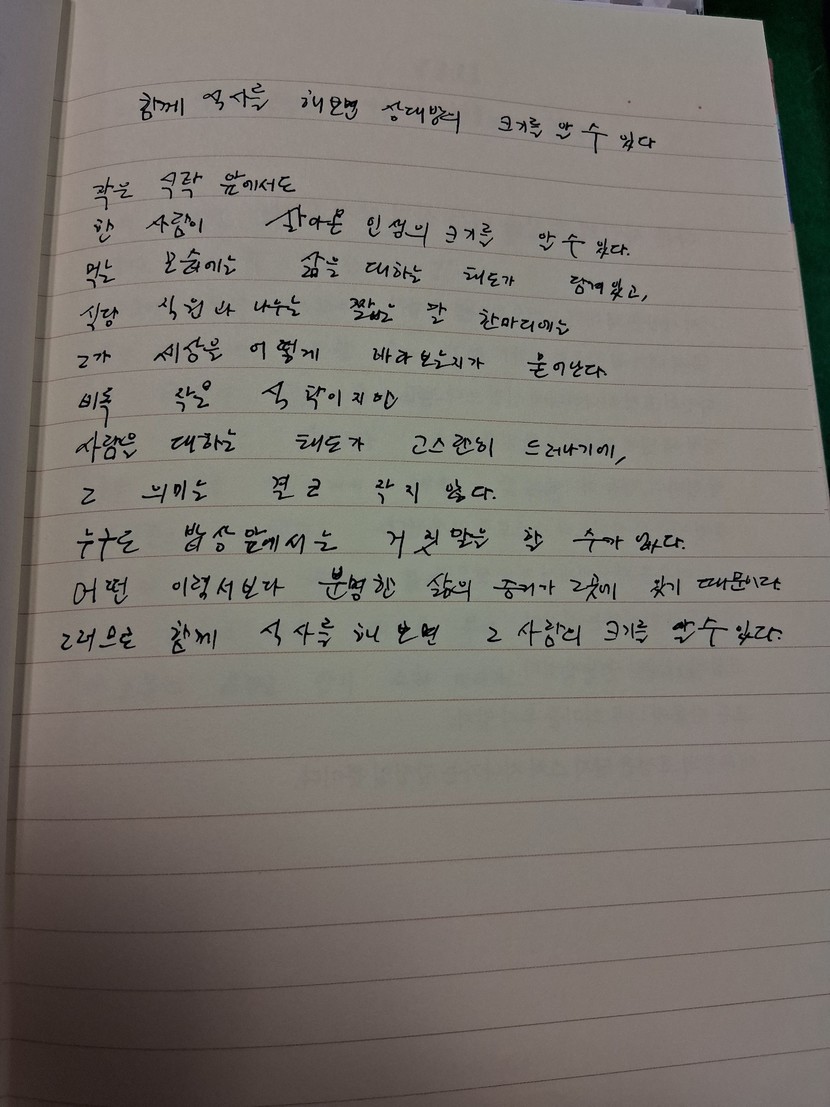 함께 식사를 해보면 상대방의 크기를 알 수 있다
작은 식탁 앞에서도
한 사람이 살아온 인생의 크기를 알 수 있다.
먹는 모습에는 삶을 대하는 태도가 담겨있고,
식당 직원과 나누는 짧은 말 한마디에는
그가 세상을 어떻게 바라보는지가 묻어난다.
비록 작은 식탁이지만
사람을 대하는 태도가 고스란히 드러나기에,
그 의미는 결코 작지 않다.
누구도 밥상앞에서는 거짓말을 할 수가 없다.
어떤 이력서보다 분명한 삶의 증거가 그곳에 있기 때문이다
그러므로 함께 식사를 해보면 그 사람의 크기를 알 수 있다.